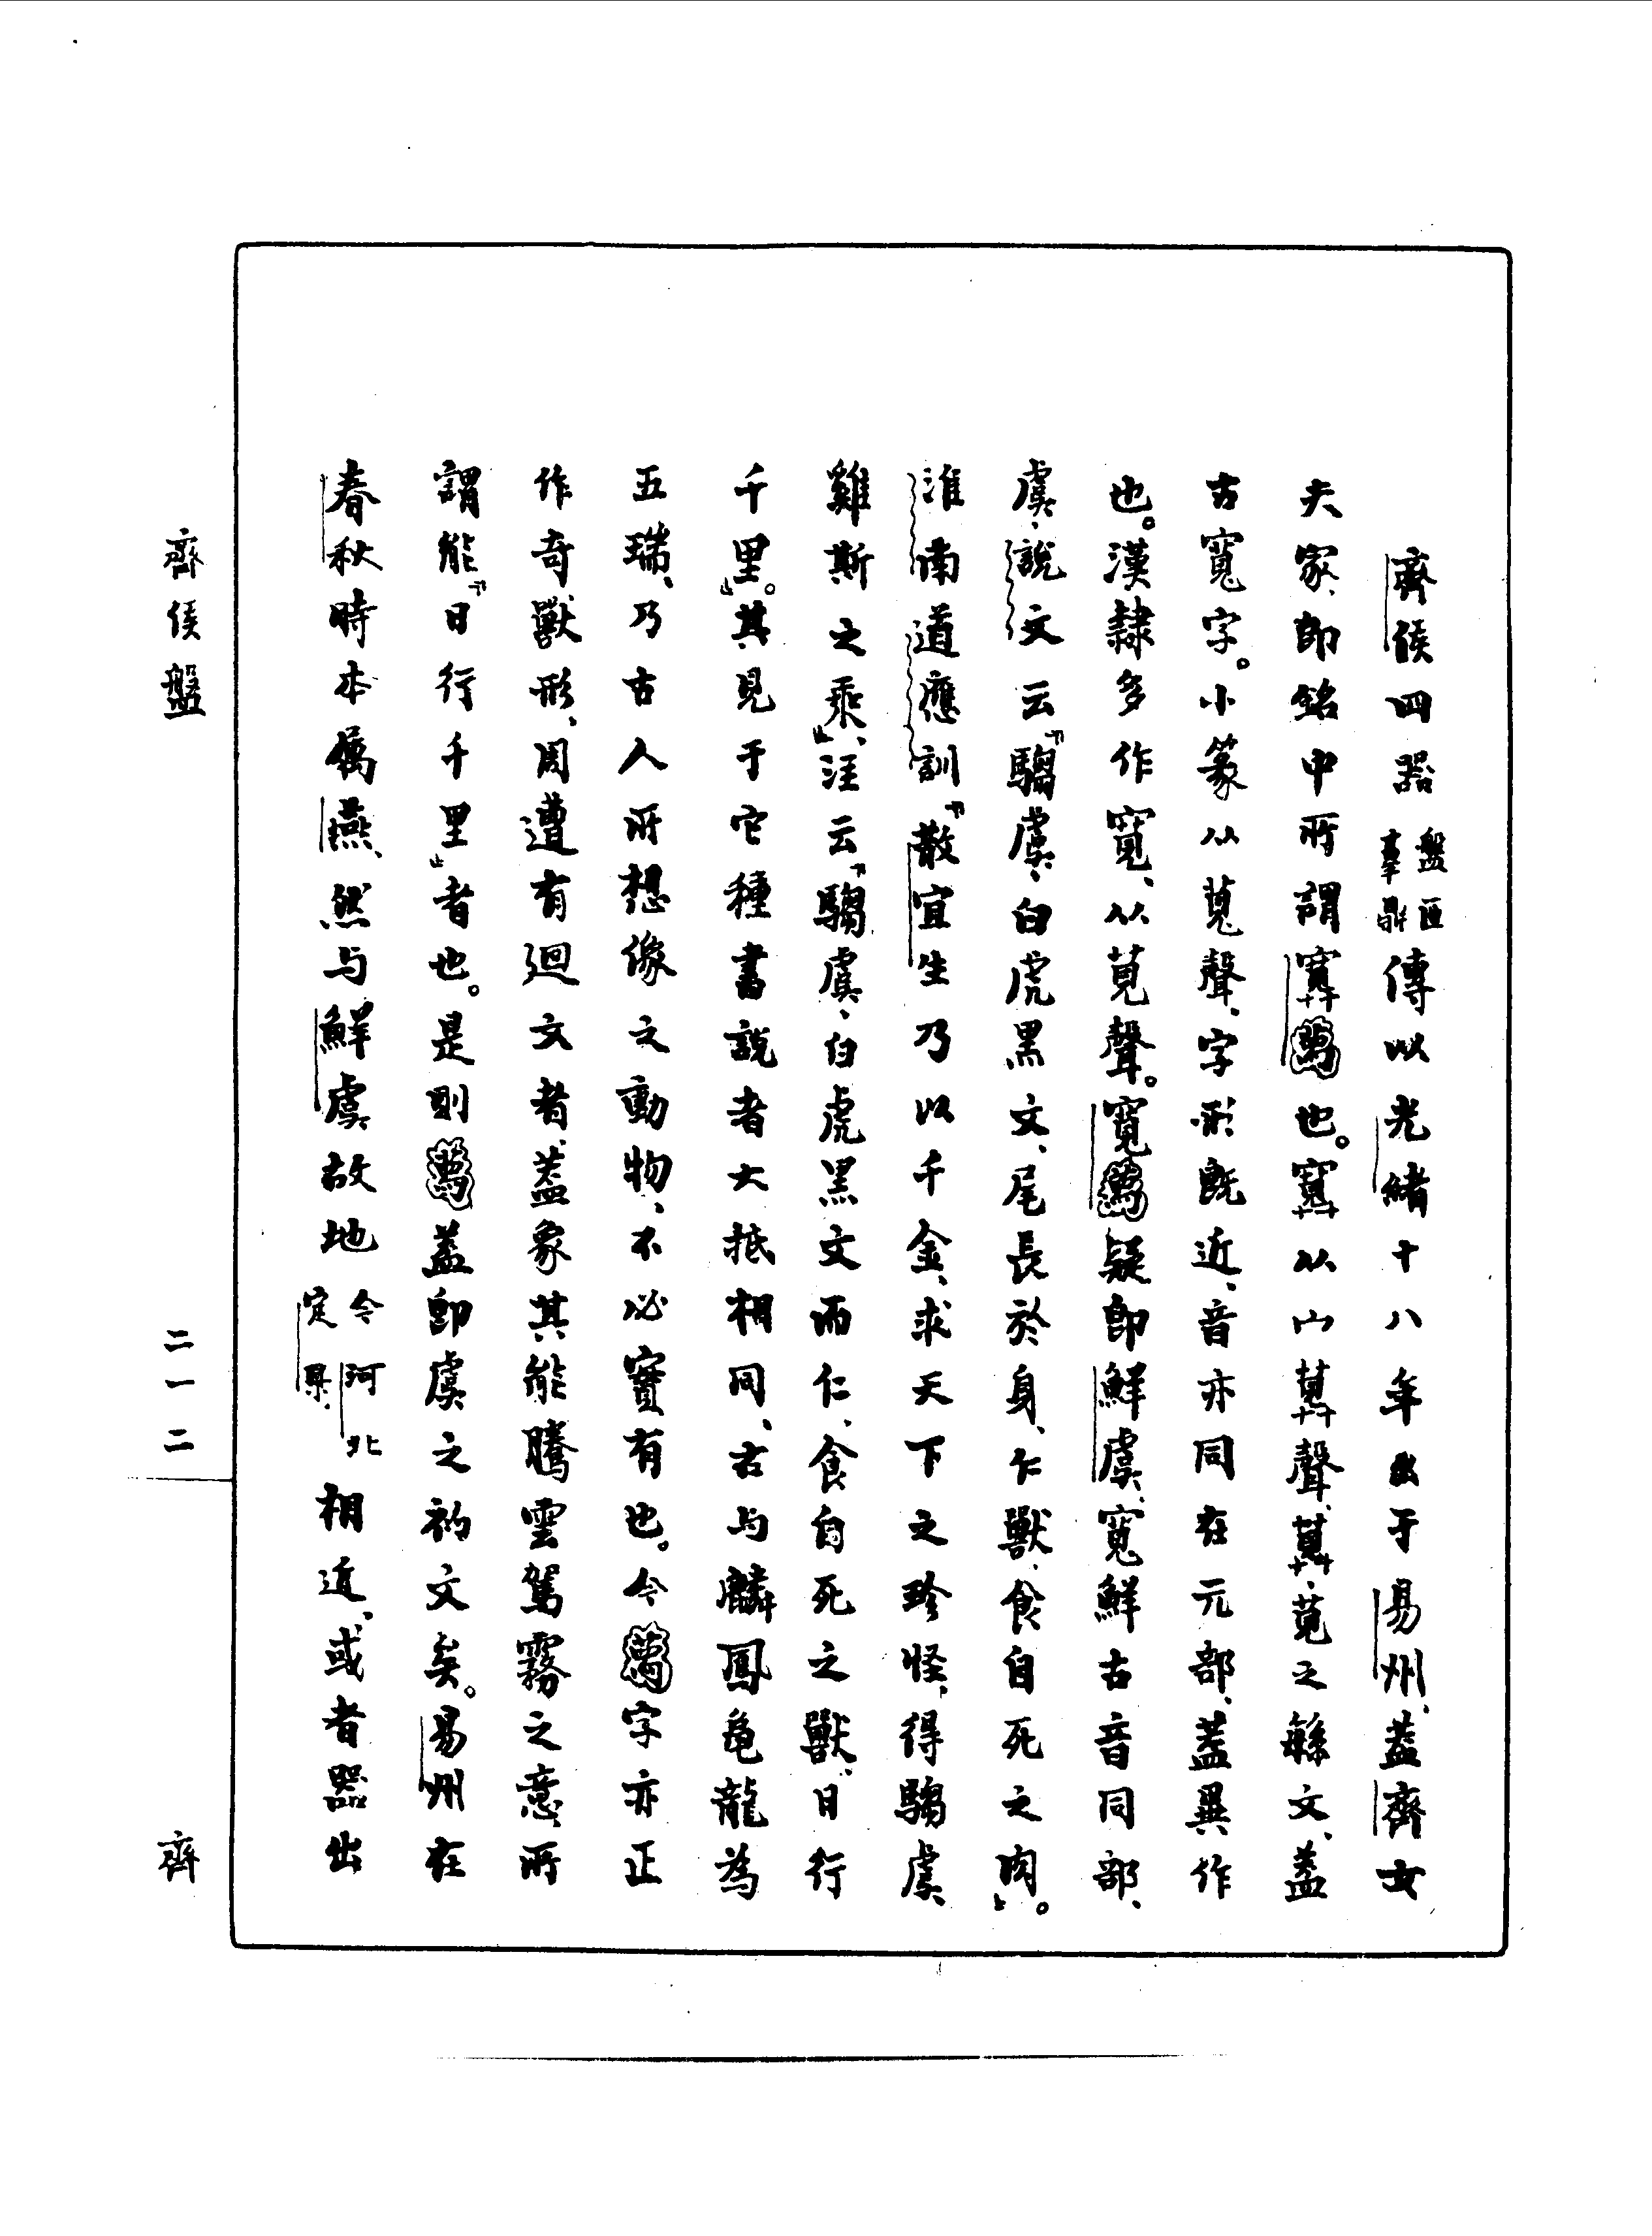 齊侯四器盤匜𦎫鼎傳以光緒十八年出于易州、蓋齊女
夫家、即銘中所謂寬也。寬从宀莧聲、莧、莧之緐文、蓋
古寬字。小篆从莧聲、字形既近、音亦同在元部、蓋異作
也。漢隸多作寬、从莧聲。寬疑即鮮虞、寬鮮古音同部、
虞、說文云『騶虞、白虎黑文、尾長於身、仁獸、食自死之肉』。
淮南道應訓『散宜生乃以千金、求天下之珍怪、得騶虞、
雞斯之乘』、注云『騶虞、白虎黑文而仁、食自死之獸、日行
千里』。其見于它種書說者大抵相同、古与麟鳳龜龍為
五瑞、乃古人所想像之動物、不必實有也。今字亦正
作奇獸形、周遭有迴文者、蓋象其能騰雲駕霧之意、所
謂能『日行千里』者也。是則蓋即虞之初文矣。易州在
春秋時本屬燕、然与鮮虞故地今河北定縣、相近、或者器出
齊侯盤 二一二 齊